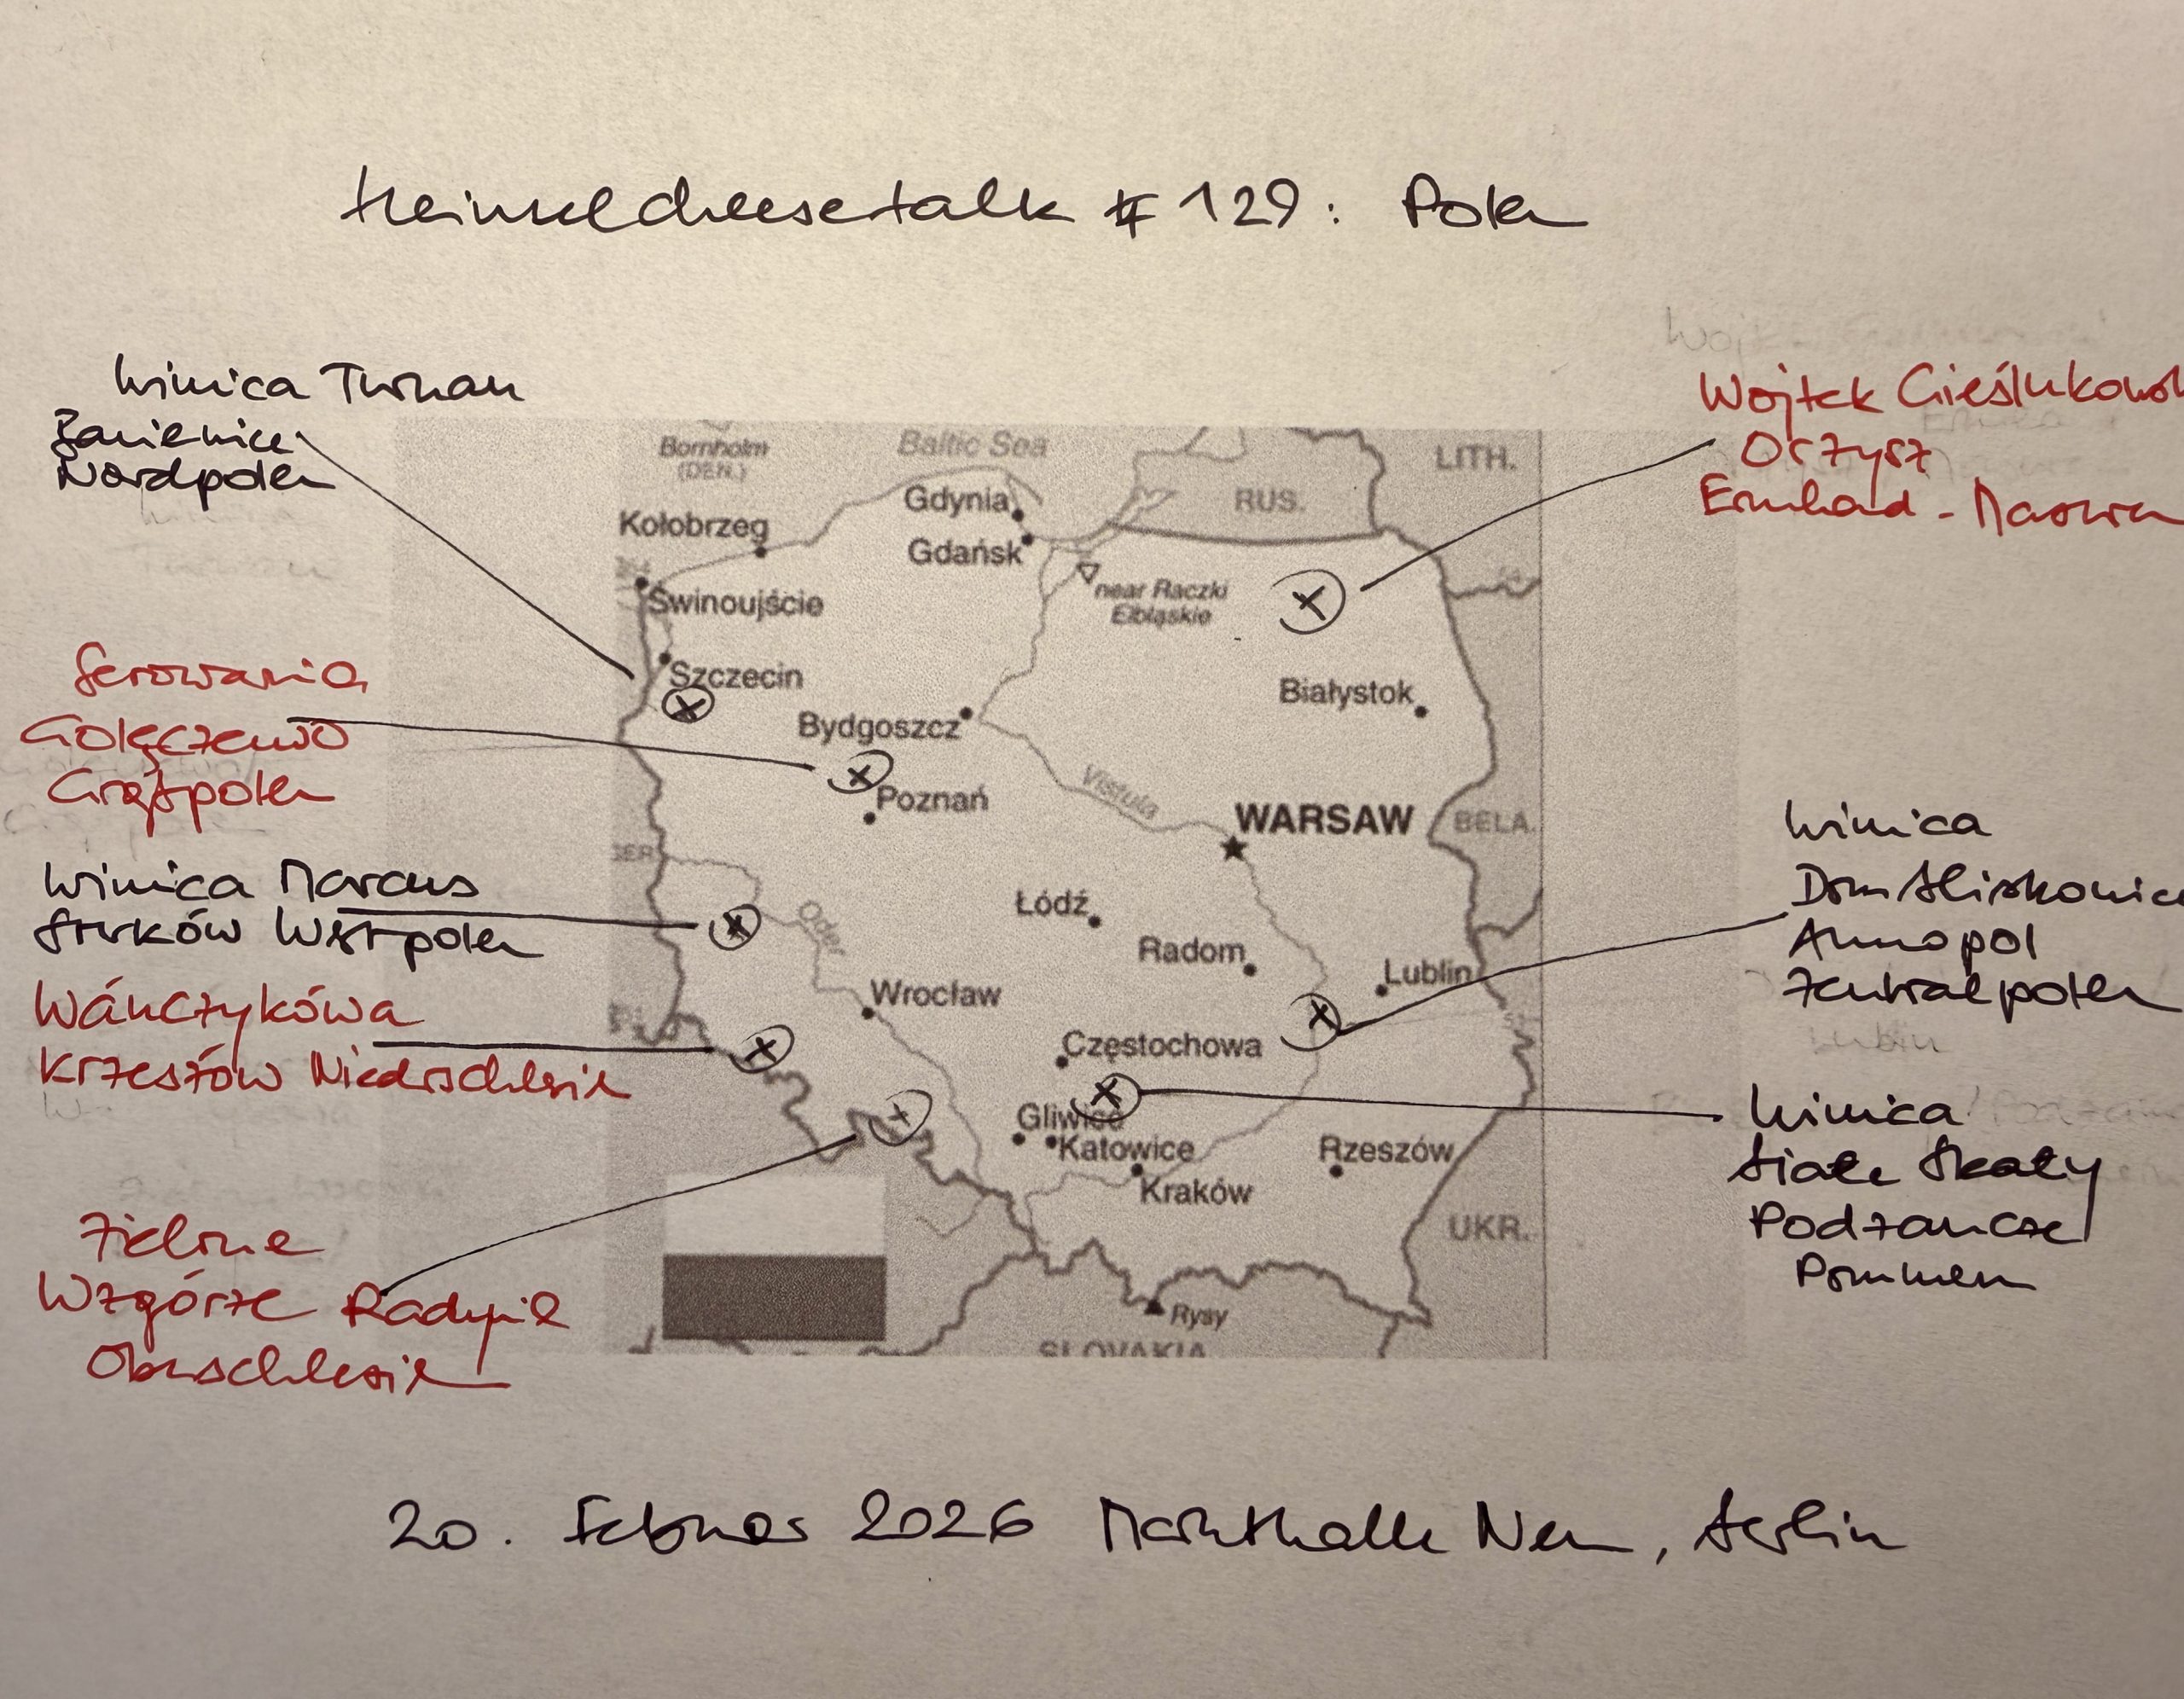 Heinzelcheesetalk # 129: Polen
Winnica Turnau
Baniewice
Nordpolen
Serowarnia
Golęczewo
Großpolen
Winnica Marcus
Westpolen
Wańczykówka
Krzeszów Niederschlesien
Zielone
Wzgórze Radynia
Oberschlesien
Wojtek Cieślukowsk
Orzysz
Ermland - Masuren
Winnica
Dom Bliskowice
Annopol
Zentralpolen
Winnica
Białe Skały
Podzamcze
Pommern
Bornholm
(DEN.)
Baltic Sea
LITH.
RUS.
Gdynia
Kołobrzeg
Gdańsk
Świnoujście
near Raczki
Elbląskie
Szczecin
Białystok
Bydgoszcz
Poznań
Vistula
WARSAW
BELA.
GER.
Łódź
Oder
Radom
Lublin
Wrocław
Częstochowa
Gliwice
Katowice
Rzeszów
Kraków
UKR.
Rysy
SLOVAKIA
20. Februar 2026 Markthalle Neun, Berlin